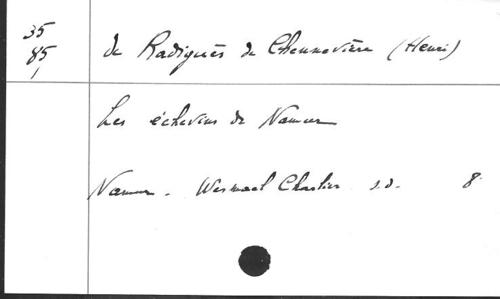 35
85
1
de Radiguès de Chennevière (Henri)
Les échevins de Namur
Namur - Wesmael Charlier s.d. 8°